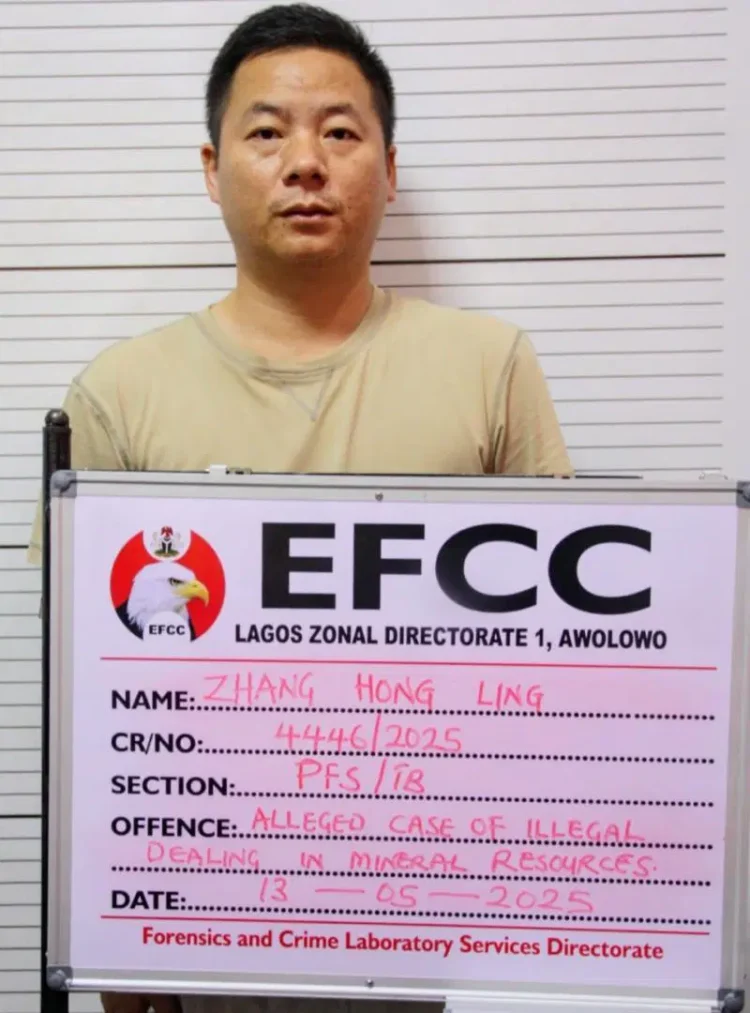 EFCC
EFCC
LAGOS ZONAL DIRECTORATE 1, AWOLOWO
NAME: ZHANG HONG LING
CR/NO: 4446/2025
SECTION: PFS/TB
OFFENCE: ALLEGED CASE OF ILLEGAL
DEALING IN MINERAL RESOURCES.
DATE: 13 — 05 — 2025
Forensics and Crime Laboratory Services Directorate